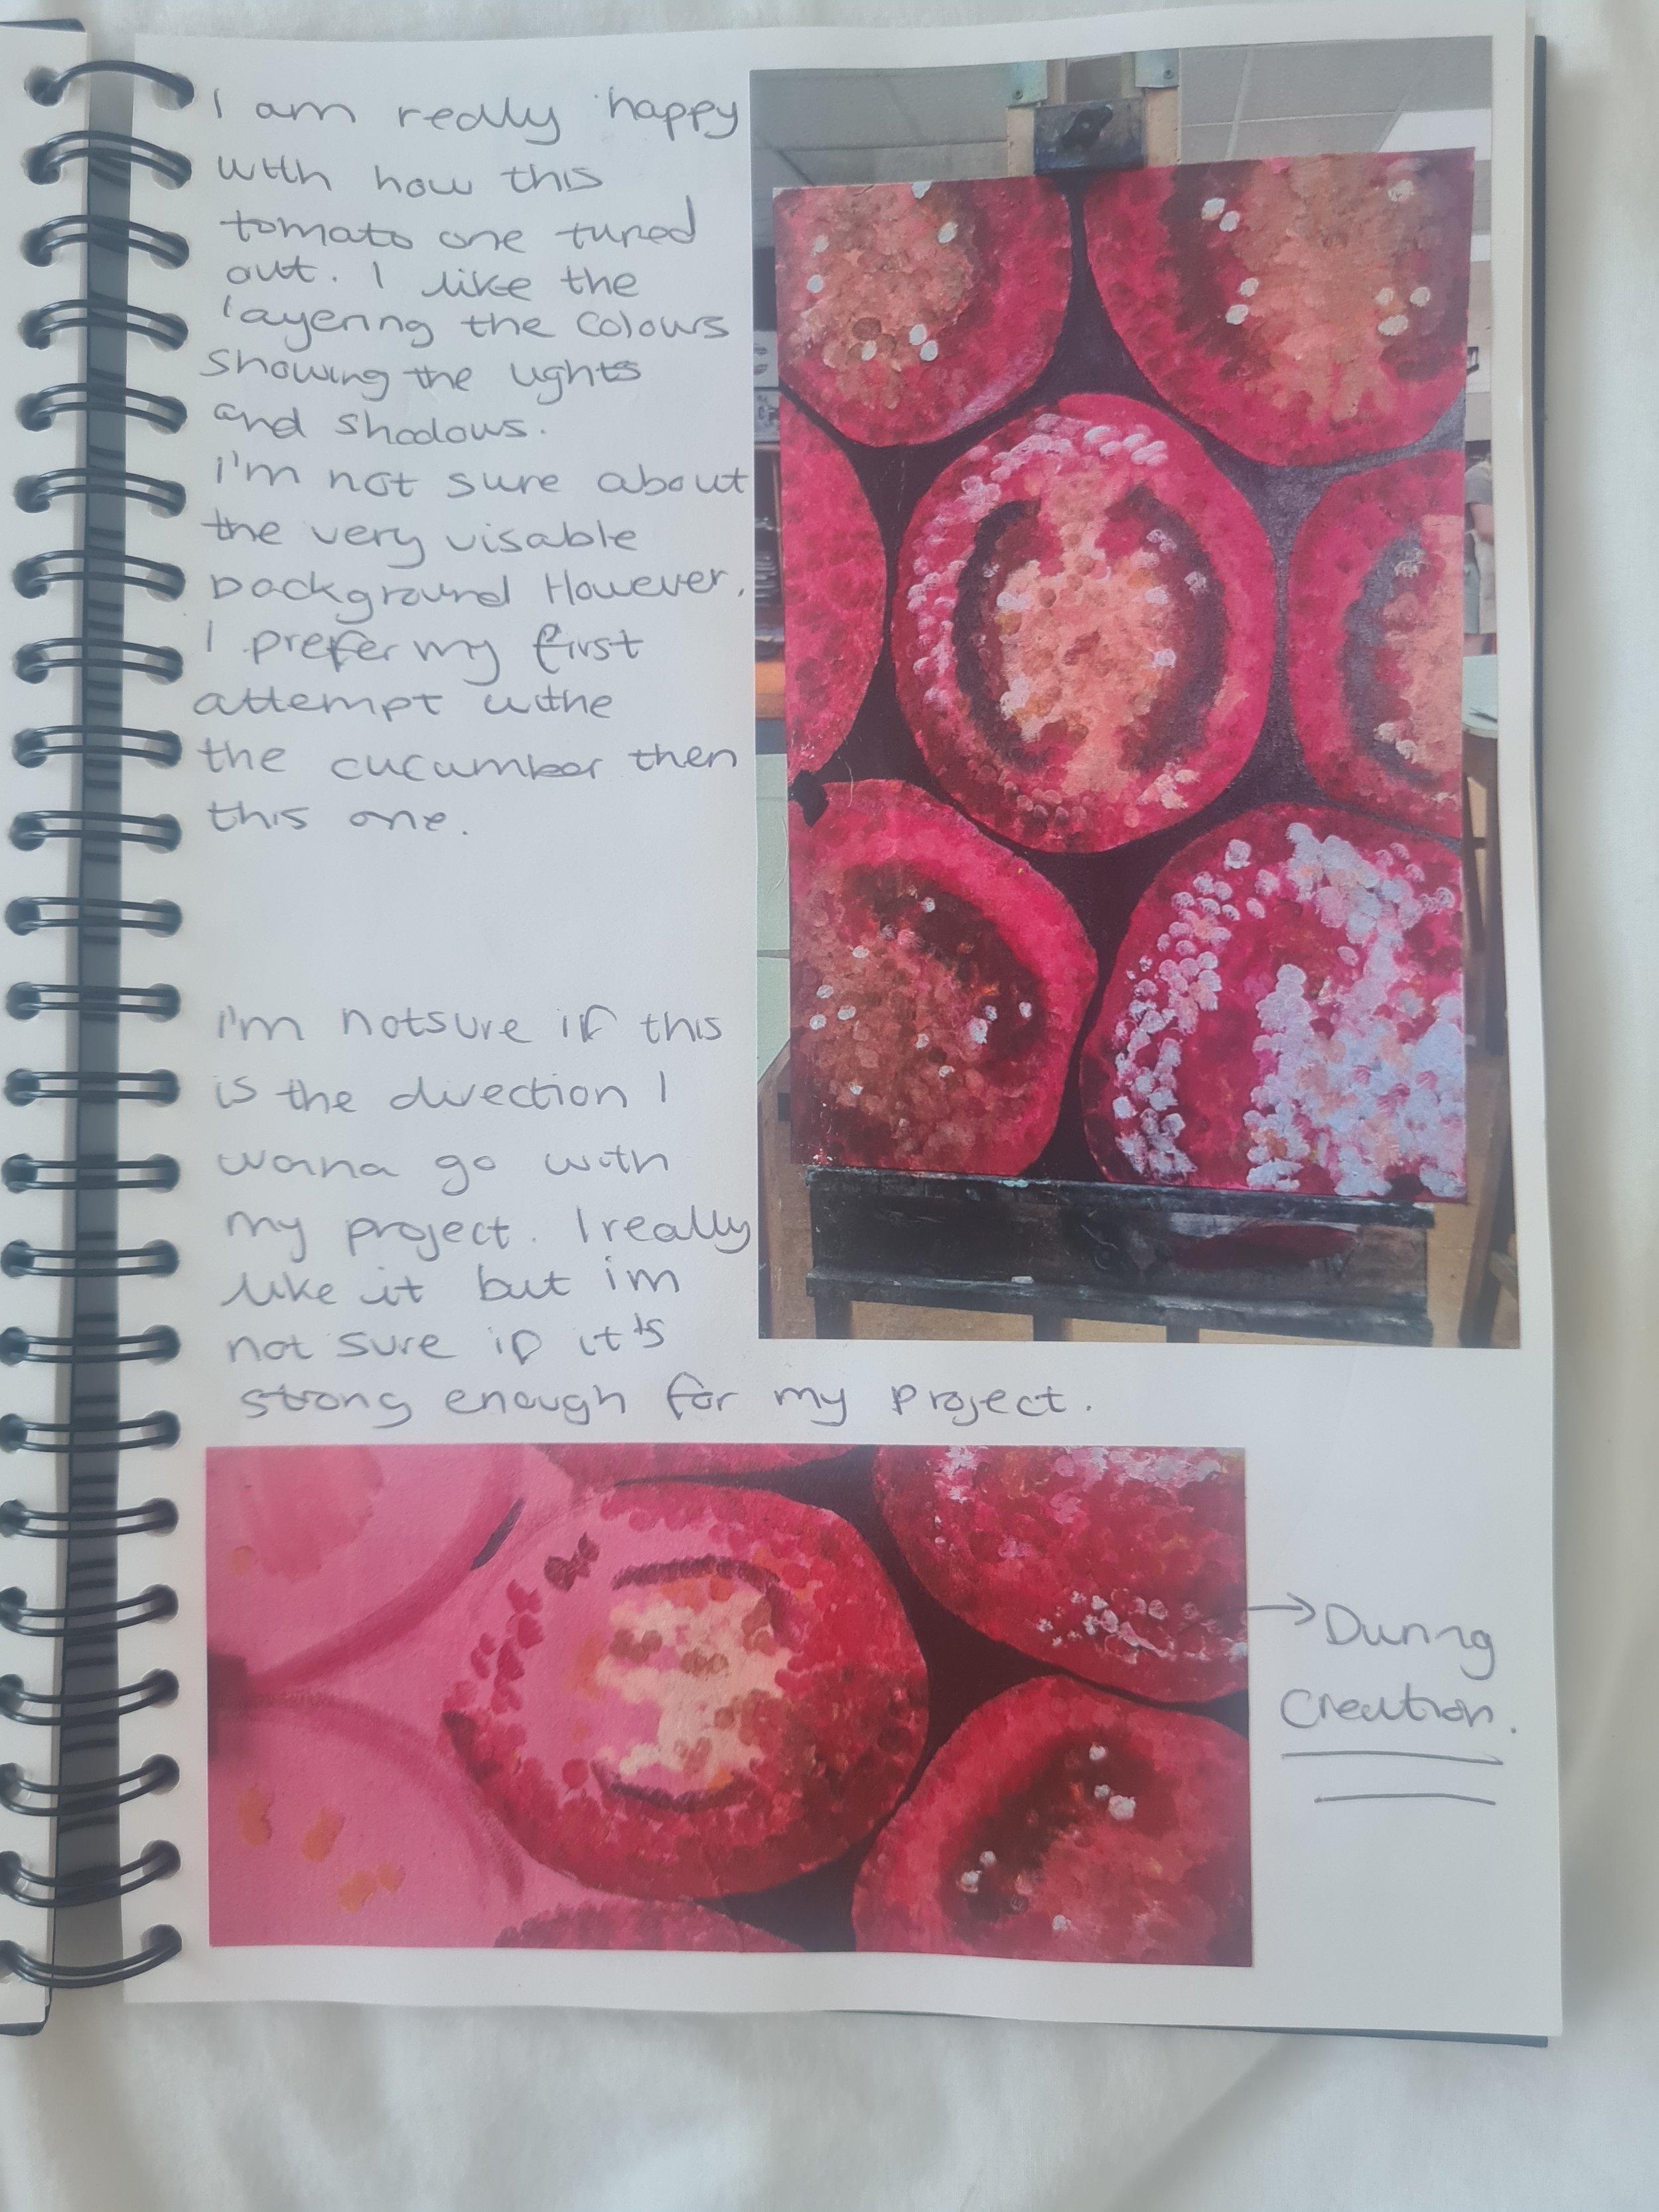 I am really happy
with how this
tomato one tuned
out. I like the
layering the colours
showing the lights
and shadows.
I'm not sure about
the very visable
background However,
I prefer my first
attempt withe
the cucumber then
this one.
I'm not sure if this
is the direction I
wanna go with
my project. I really
like it but im
not sure if it's
strong enough for my project.
→ During
Creation.